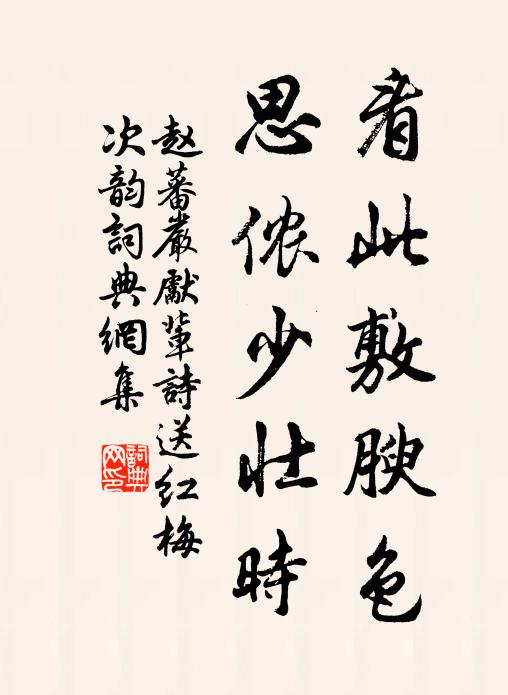 看此敷腴色
思侬少壮時
赵蕃嚴獻輩詩送红梅
次韵詞典網集
詞典
网印